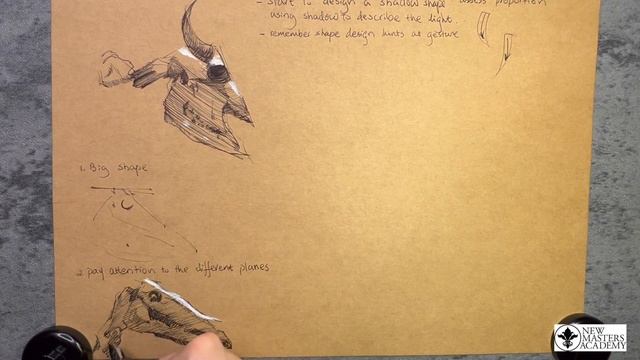 - start to design a shadow shape assess proportion
using shadow to describe the light.
- remember shape design hints at gesture
1. Big shape
2. pay attention to the different planes
NEW
MASTERS
ACADEMY